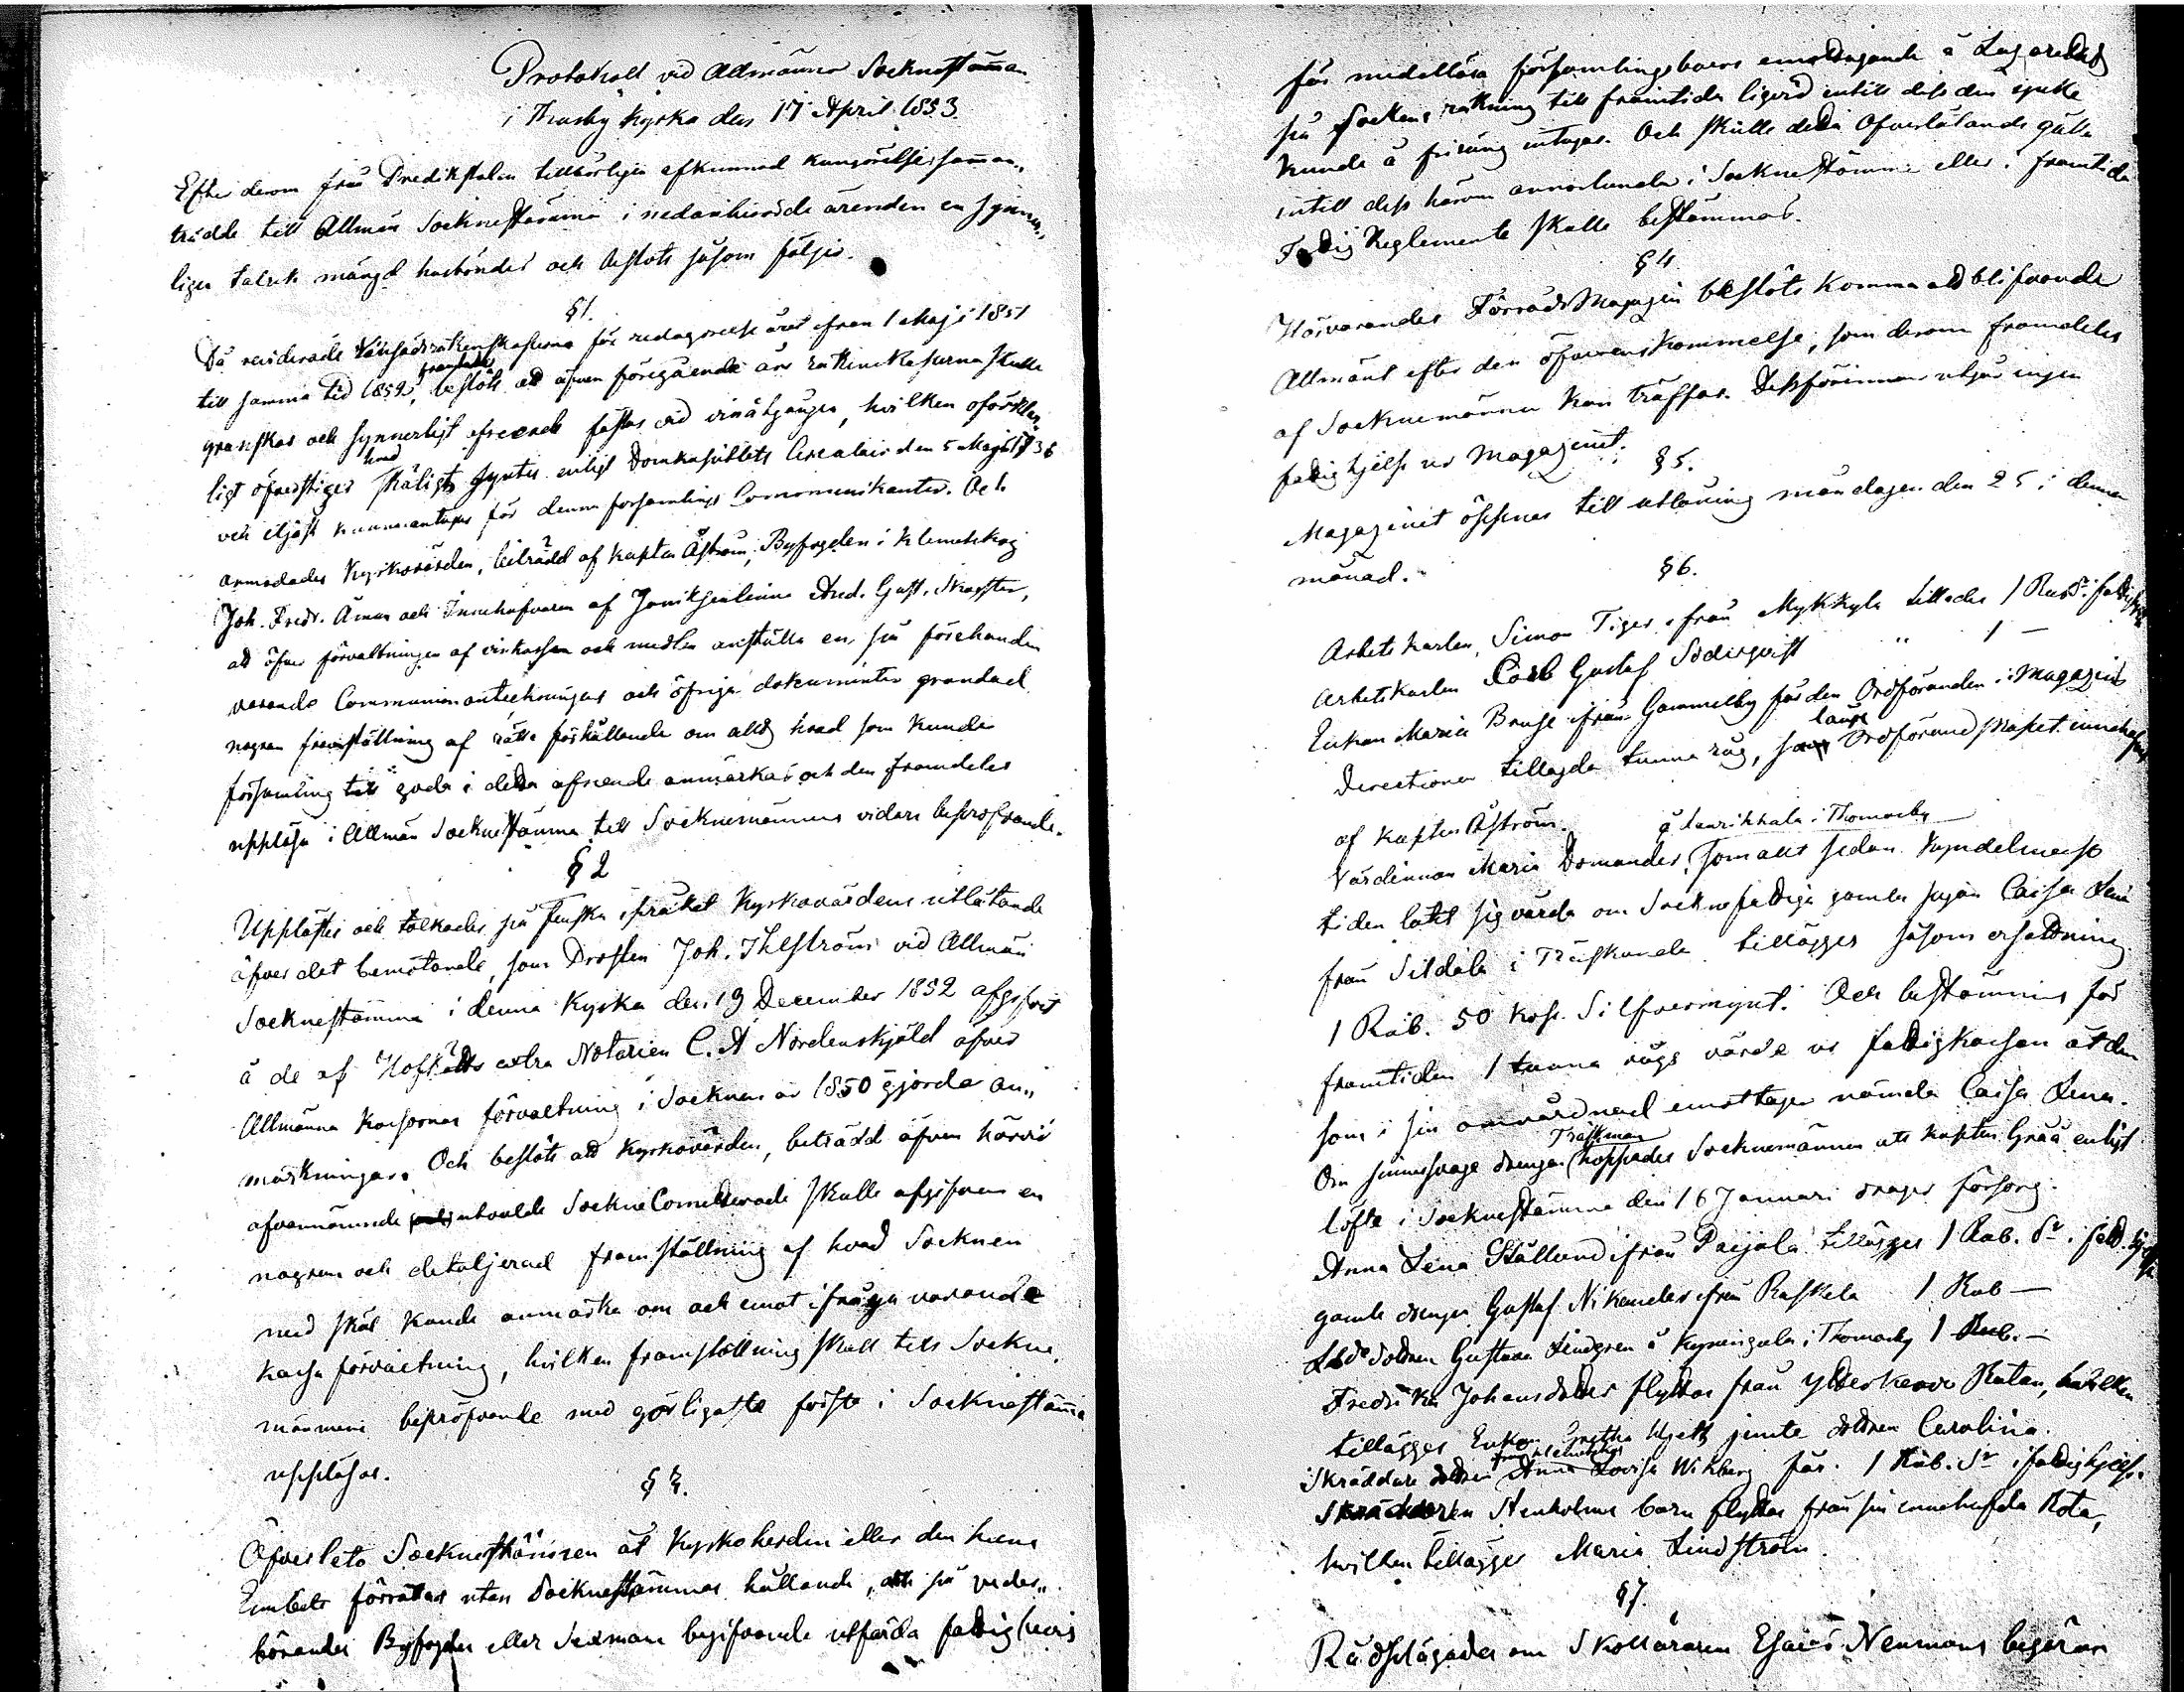 Protokoll vid Allmänna Socknestämman
i Thusby Kyrka den 17 April 1853.
Efter derom från Predikstolen tillbörligen afkunnad kungörelse, samman„
trädde till Allmän Socknestämma i nedanberörde ärenden en synner„
ligen talrik mängd husbönder och beslöts såsom följer.
§1.
Då reviderade räkenskaperna för redogörelse året ifrån 1 Maji 1851
till samma tid 1852, granskades beslöts att äfven föregående års räkenskaperna skulle
granskas och synnerligt afseende fästas vid vinåtgången, hvilken oförklar„
ligt öfverstiger hvad skäligt synes enligt Domkapitlets Circulair den 5 Maji 1836
och eljest kunna antagas för denna församlings Communikanter. Och
anmodades Kyrkovärden, biträdd af Kapten Åström, Byfogden i Klemetskog
Joh. Fredr. Åman och Innehafvaren af And. Gust.
att öfver förvaltningen af vinkassan och medlen anställa en på förehanden
varande Communionanteckningar och öfriga dokumenter grundad
nogran framställning af rätta förhållande om allt hvad som kunde
församling till godo i detta afseende anmärkas och den framdeles
uppläsa i Allmän Socknestämma till Socknemännens vidare bepröfvande.
§ 2
Upplästes och tolkades på Finska språket Kyrkovärdens utlåtande
öfver det bemötande, som Prosten Joh. Ihlström vid Allmän
Socknestämma i denna Kyrka den 19 December 1852 afgifvit
å de af Hofrätts extra Notarien C. A Nordenskjöld öfver
Allmänna Kassornas förvaltning i Socknen år 1850 gjorda an„
märkningar. Och beslöts att Kyrkovärden, biträdd äfven härvid
ofvannämnde utvalde Sockne Comitterade skulle afgifva en
nogran och detaljerad framställning af hvad Socknen
med skäl kunde anmärka om och emot ifråga varande
kassa förvaltning, hvilken framställning skall till Sockne„
männens bepröfvande med görligaste första i Socknestämma
uppläsas.
§ 3.
Öfverlets Socknestämman åt Kyrkoherden eller den hans
Embete förrättar utan Socknestämmas hållande, och på veder„
börandes Byfogdes eller Sexmans begifvande utfärda fattig bevis
för medellösa församlingsboers emottagande å Lazarettet
på Sockens räkning till framtida ligovid intill dess den sjuke
kunde å frisäng intagas. Och skulle detta Öfverlåtande gälla
intill dess härom annorlunda i Socknestämma eller i framtida
Fattig Reglemente skulle bestämmas.
§ 4
Härvarandes Förråds Magazin beslöts komma att blifvande
Allmänt efter den öfverenskommelse, som derom framdeles
af Socknemännen kan träffas. Dessförinnan utgår ingen
fattighjelp ur Magazinet.
§ 5.
Magazinet öppnas till utlåning måndagen den 25 i denna
månad.
§ 6.
Arbetskarlen Simon Tiger ifrån Mykkylä tillades 1 Rub Sr fattighjelp
Arbetskarlen Carl Gustaf Söderqvist " 1 —
Enkan Maria Bruse ifrån Gammelby får den Ordföranden i Magazins
Directionen tillagda tunna råg, Ordförandskapet innehafves
af Kapten Åström.
Värdinnan Maria Domander, å Henrikkala i Thomasby som allt sedan Kyndelmesso
tiden låtit sig vårda om Socknefattiga gamla pigan Caisa Lena
från Sildala i Träskända tillägges såsom ersättning
1 Rub. 50 kop. Silfvermynt. Och bestämmes för
framtiden 1 tunna rågs värde ur fattigkassan åt den
som i sin omvårdnad emottager nämnda Caisa Lena.
Om sinnessvage drengen Träskman hoppades Socknemännen att Kapten Gråå enligt
löfte i Socknestämma den 16 Januari drager försorg.
Anna Lena Stållund ifrån Paijala tillägges 1 Rub. Sr. i fatt. hjelp
gamle drengen Gustaf Nikander ifrån Ruskela 1 Rub —
Soldottren Gustava Lindgren å Kyningala i Thomasby 1 Rub. —
Fredrika Johansdotter flyttas från Rotan, hvilken
tillägges Enkan Gretha Hjelt jemte dottren Carolina.
Skräddare dottren Anna Lovisa Wikberg från Klemetskog får 1 Rub. Sr i fattighjelp.
Skräddaren Stenholms barn flyttas från sin innehafda Rota,
hvilken tillägges Maria Lindström.
§7.
Rådplägades om Skolläraren Esaias Neumans begäran